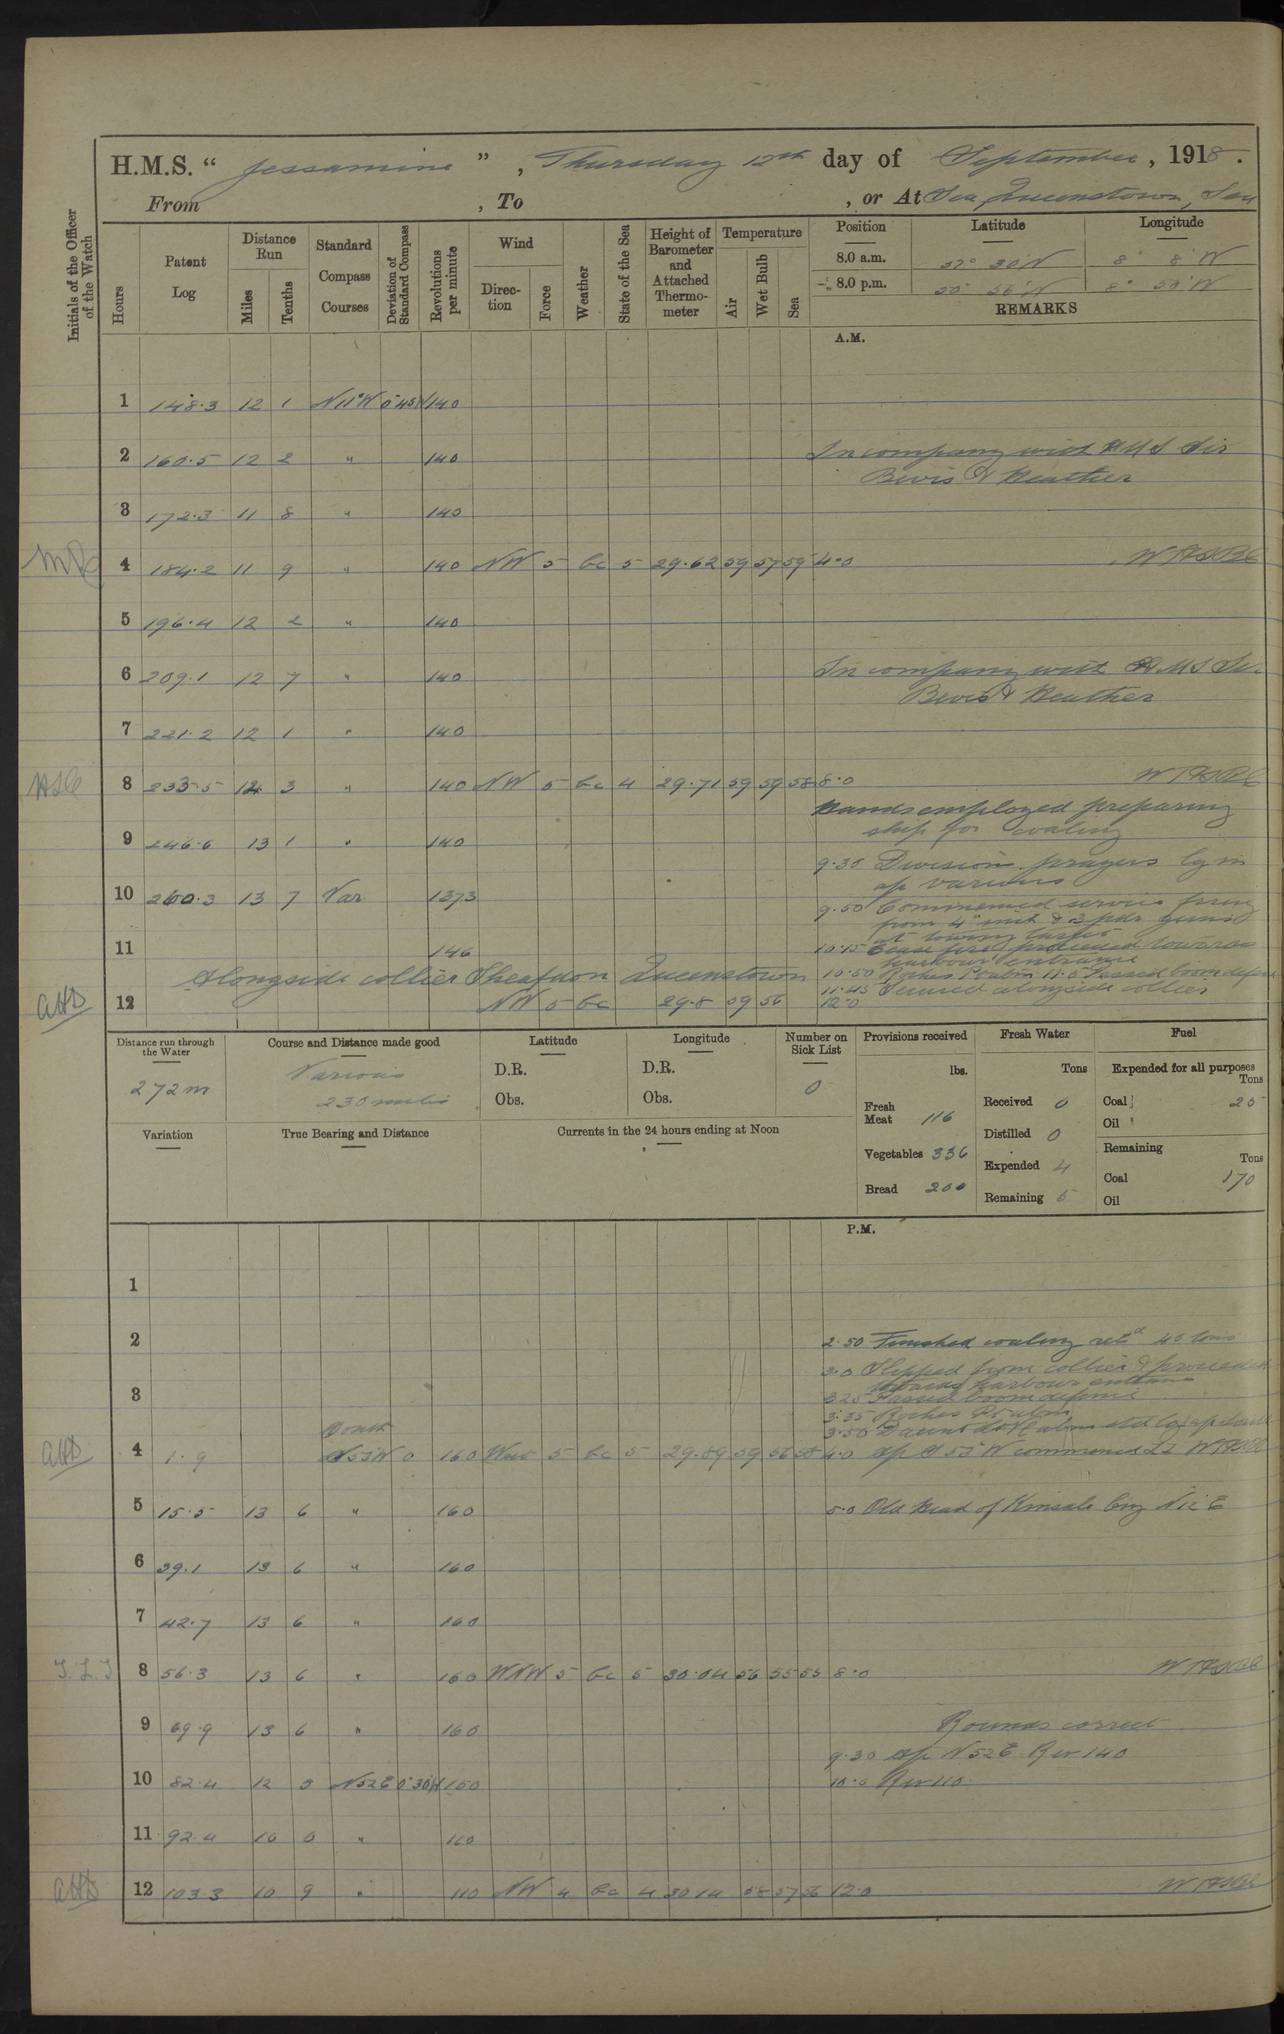 H.M.S. “ Jessamine ” , Thursday 12th day of September , 1918 .
From , To , or At Sea, Queenstown, Sea
Initials of the Officer of the Watch
Hours
Patent Log
Distance Run
Miles
Tenths
Standard Compass Courses
Deviation of Standard Compass
Revolutions per minute
Wind
Direction
Force
Weather
State of the Sea
Height of Barometer and Attached Thermometer
Temperature
Air
Wet Bulb
Sea
Position Latitude Longitude
8.0 a.m. 30' N 8° 8' W
8.0 p.m. 50° 56' N 8° 58' W
REMARKS
A.M.
1 148.3 12 1 N11°W 0°45' 140
2 160.5 12 2 " 140 In company with HMS Sir
Bevis & Heather
3 172.3 11 8 " 140
4 184.2 11 9 " 140 NW 5 bc 5 29.62 59 57 59 4.0
5 196.4 12 2 " 140
6 209.1 12 7 " 140 In company with HMS Sir
Bevis & Heather
7 221.2 12 1 " 140
8 233.5 12 3 " 140 NW 5 bc 4 29.71 59 59 58 8.0
Hands employed preparing
ship for coaling
9 246.6 13 1 " 140
9.30 Division prayers
various
10 260.3 13 7 Var 137.3
9.50 Commenced service firing
from 4 inch & 3 pdr guns
at towing target
11 146 10.15 Cease fire proceeded towards
harbour entrance
Alongside collier Sheafdon Queenstown 10.50 Roches Pt abm 11.5 Passed boom defence
11.45 Secured alongside collier
12 NW 5 bc 29.8 59 56 12.0
Distance run through the Water
272 m
Course and Distance made good
Various
230 miles
Latitude
D.R.
Obs.
Longitude
D.R.
Obs.
Number on Sick List
0
Provisions received
lbs.
Fresh Meat 116
Vegetables 336
Bread 200
Fresh Water
Tons
Received 0
Distilled 0
Expended 4
Remaining 5
Fuel
Expended for all purposes
Tons
Coal 25
Oil
Remaining
Tons
Coal 170
Oil
Variation
True Bearing and Distance
Currents in the 24 hours ending at Noon
P.M.
1
2 2.50 Finished coaling recd 40 tons
3.0 Slipped from collier & proceeded
towards harbour entrance
3 3.25 Passed boom defence
3.35 Roches Pt abm
3.50 Daunt
South
4 1.9 S53W 0 160 West 5 bc 5 29.89 59 56 58 4.0 S 53° W commenced ZZ
5 15.5 13 6 " 160 5.0 Old Head of Kinsale brg N12E
6 29.1 13 6 " 160
7 42.7 13 6 " 160
8 56.3 13 6 " 160 WNW 5 bc 5 30.04 56 55 55 8.0
9 69.9 13 6 " 160 Rounds correct
9.30 N52E Rev 140
10 82.4 12 5 N52E 0°30' 150 10.0 Rev 110
11 92.4 10 0 " 110
12 103.3 10 9 " 110 NW 4 bc 4 30.14 58 57 56 12.0